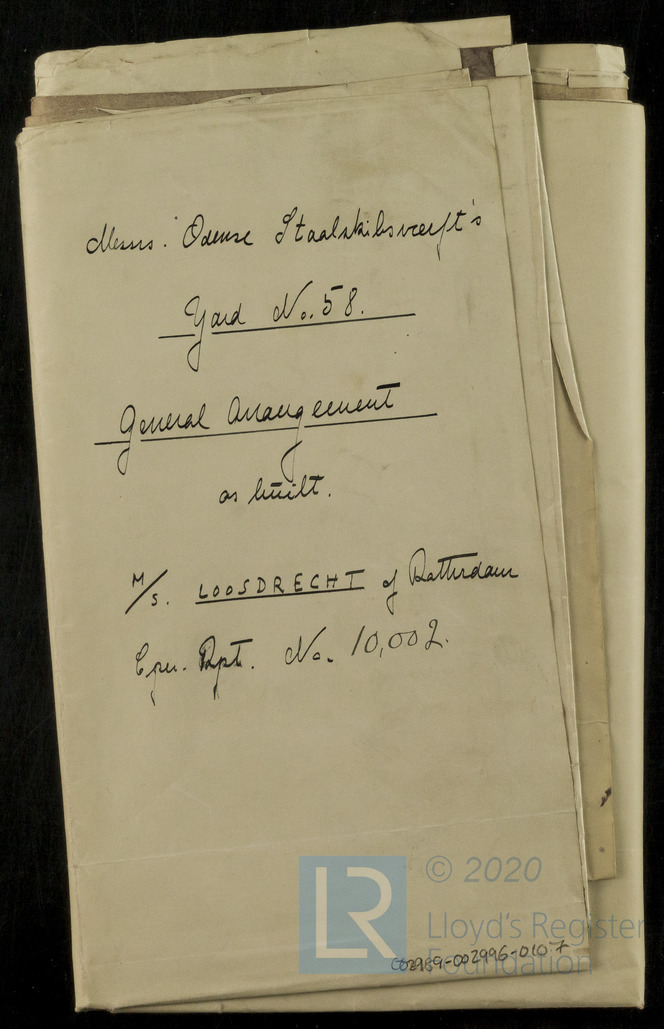 Messrs. Odense Staalskibsværft's
Yard No. 58.
General Arrangement
as built.
M/S. LOOSDRECHT of Rotterdam
Cpn. Rpt. No. 10,002.
LR
© 2020
Lloyd's Register
Foundation
002989-002996-0107